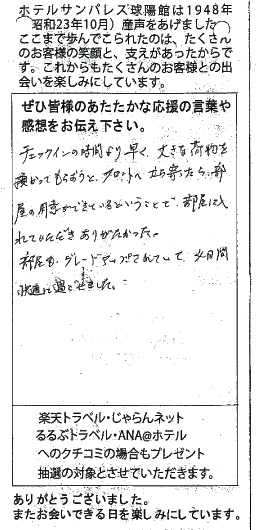 ホテルサンパレス球陽館は1948年
(昭和23年10月)産声をあげました
ここまで歩んでこられたのは、たくさん
のお客様の笑顔と、支えがあったからで
す。これからもたくさんのお客様との出
会いを楽しみにしています。
ぜひ皆様のあたたかな応援の言葉や
感想をお伝え下さい。
チェックインの時間より早く、大きな荷物を
預かってもらおうと、フロントへ立ち寄ったら、部
屋の用意ができているということで、部屋に入
れていただきありがたかった。
部屋も、グレードアップされていて、4日間
快適に過ごせました。
楽天トラベル・じゃらんネット
るるぶトラベル・ANA@ホテル
へのクチコミの場合もプレゼント
抽選の対象とさせていただきます。
ありがとうございました。
またお会いできる日を楽しみにしています。